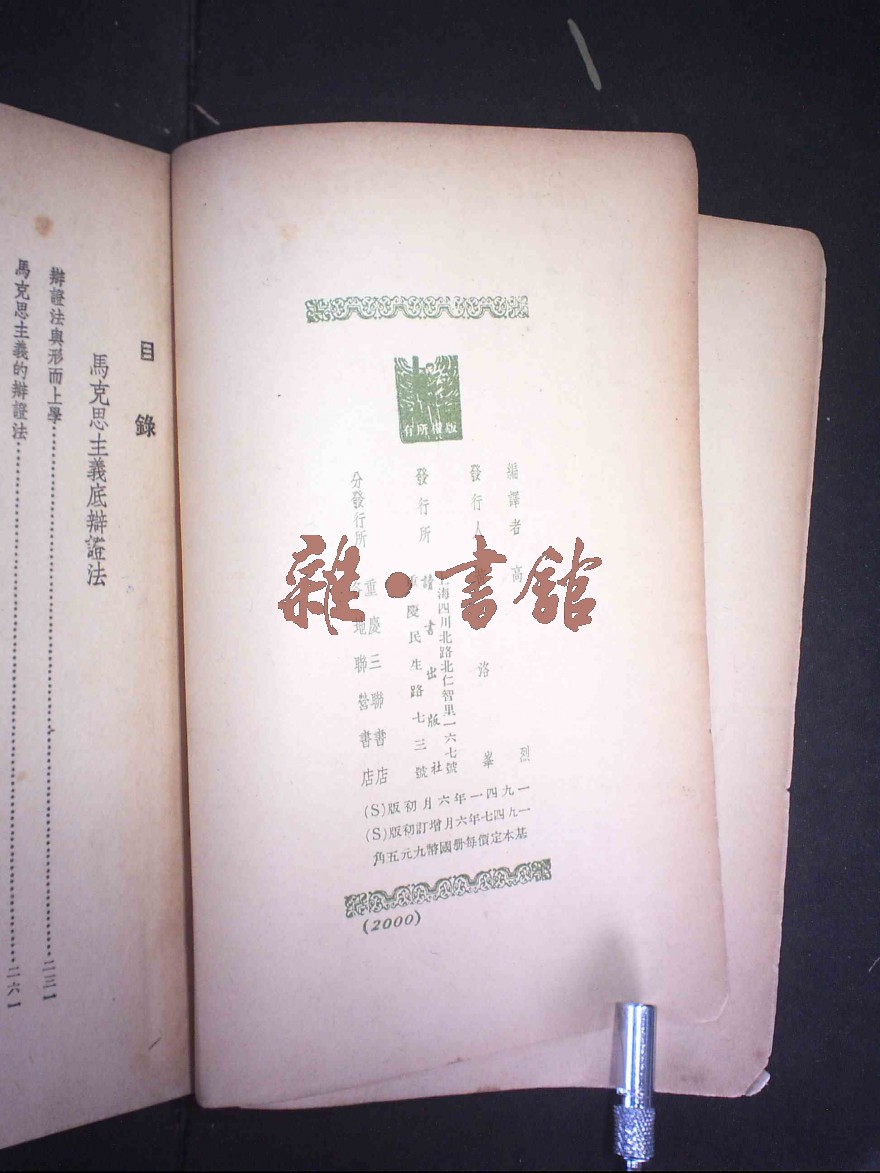 版權所有
編譯者 高 烈
發行人 洛 峯
發行所 讀書出版社
上海四川北路北仁智里一六七號
重慶民生路七三號
分發行所 重慶三聯書店
各地聯營書店
一九四一年六月初版(S)
一九四七年六月增訂初版(S)
基本定價每冊國幣九元五角
(2000)
目錄
馬克思主義底辯證法
辯證法與形而上學……二三一
馬克思主義的辯證法……二六一
雜·書館